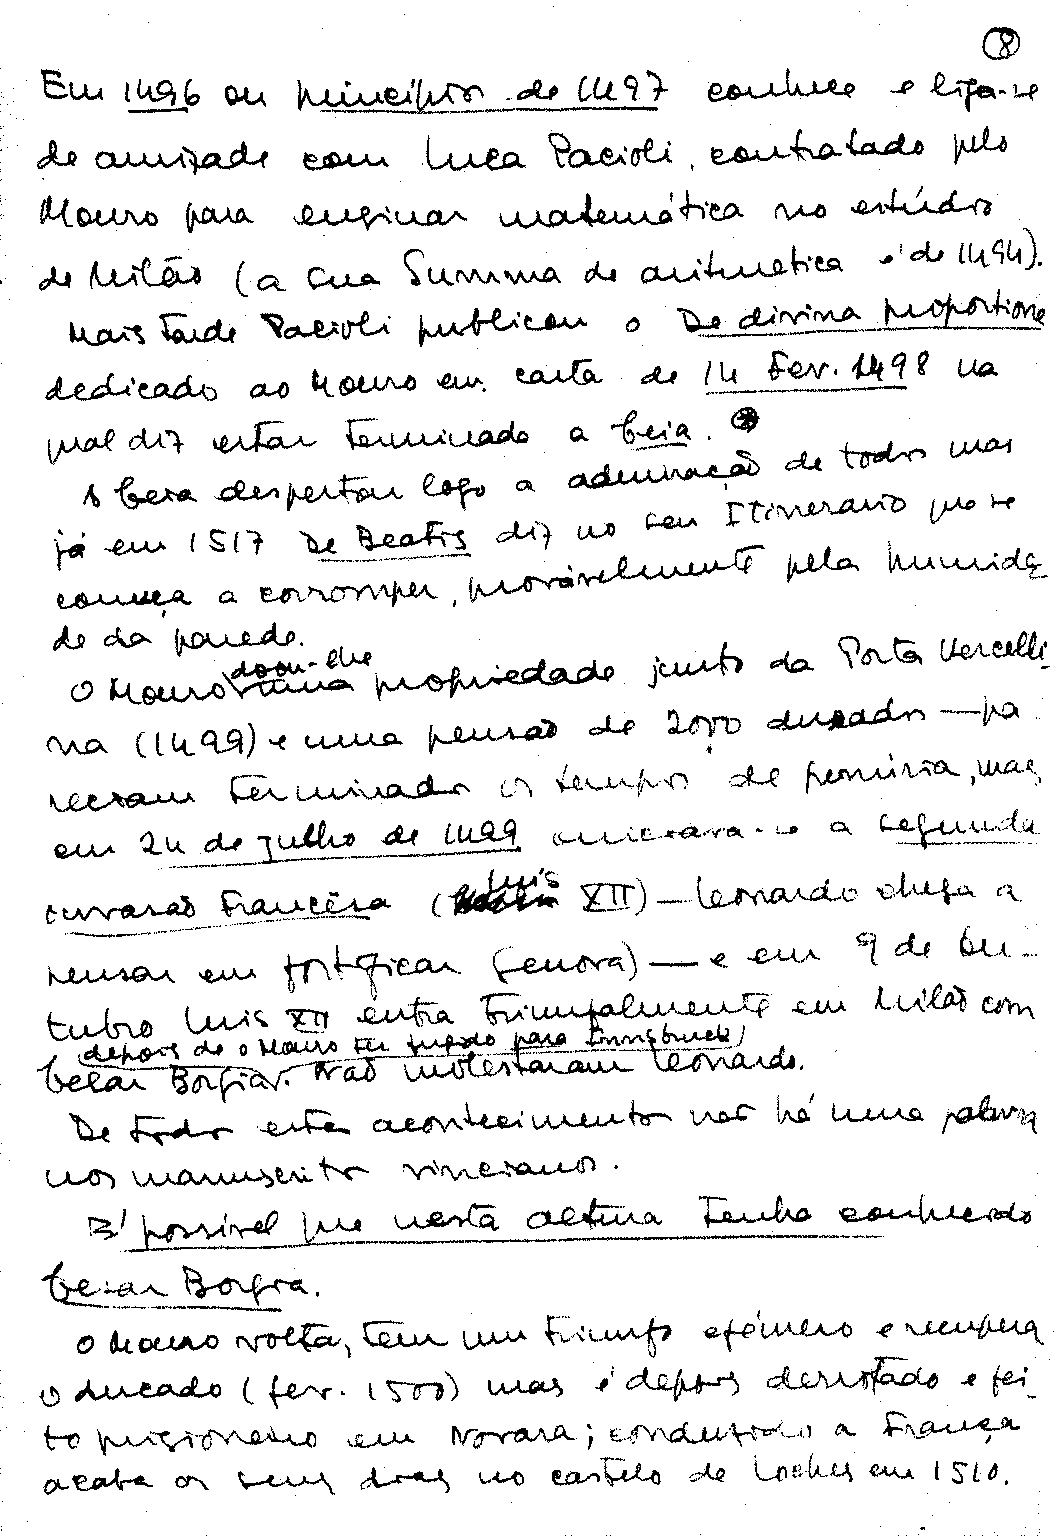 8
Em 1496 ou princípios de 1497 conhece e liga-se
de amizade com Luca Pacioli, contratado pelo
Mouro para ensinar matemática no estúdio
de Milão (a sua Summa de aritmetica é de 1494).
Mais tarde Pacioli publicou o De divina proportione
dedicado ao Mouro em carta de 14 Fev. 1498 na
qual diz estar terminado a Ceia.
A Ceia despertou logo a admiração de todos mas
já em 1517 De Beatis diz no seu Itinerario que se
começa a corromper, provávelmente pela humida
de da parede.
O Mouro doou-lhe uma propriedade junto da Porta Vercelli
na (1499) e uma pensão de 2000 ducados — pa
reciam terminados os tempos de penúria, mas
em 24 de julho de 1499 iniciara-se a segunda
invasão francesa (Luis XII) — Leonardo chega a
pensar em fortificar Genova) — e em 9 de Ou-
tubro Luis XII entra triunfalmente em Milão com
depois de o Mouro ter fugido para Innsbruck/
Cesar Borgia. Não molestaram Leonardo.
De todos estes acontecimentos não há uma palavra
nos manuscritos vincianos.
É possível que nesta altura tenha conhecido
Cesar Borgia.
O Mouro volta, tem um triunfo efémero e recupera
o ducado (fev. 1500) mas é depois derrotado e fei-
to prisioneiro em Novara; conduzido a França
acaba os seus dias no castelo de Loches em 1510.